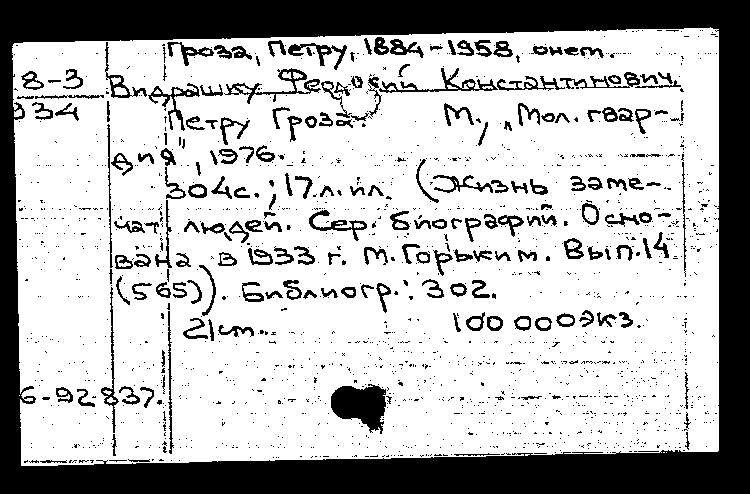 Гроза, Петру, 1884-1958, онем.
8-3 Видрашку, Феодосий Константинович.
934 Петру Гроза. М., „Мол. гвар-
дия", 1976.
304с.; 17л.ил. (Жизнь заме-
чат. людей. Сер. биографий. Осно-
вана в 1933 г. М. Горьким. Вып.14
(565)). Библиогр.: 302.
21см. 100 000экз.
6-92837.